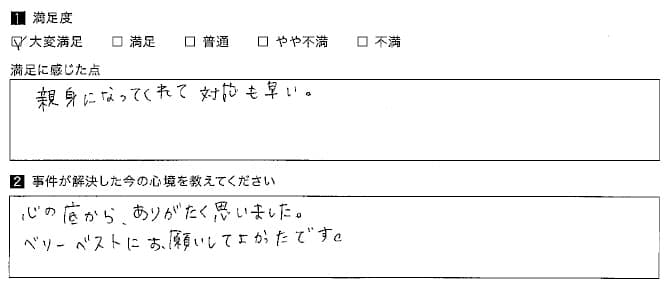 1 満足度
☑大変満足 □ 満足 □ 普通 □ やや不満 □ 不満
満足に感じた点
親身になってくれて対応も早い。
2 事件が解決した今の心境を教えてください
心の底から、ありがたく思いました。
ベリーベストにお願いしてよかたです。